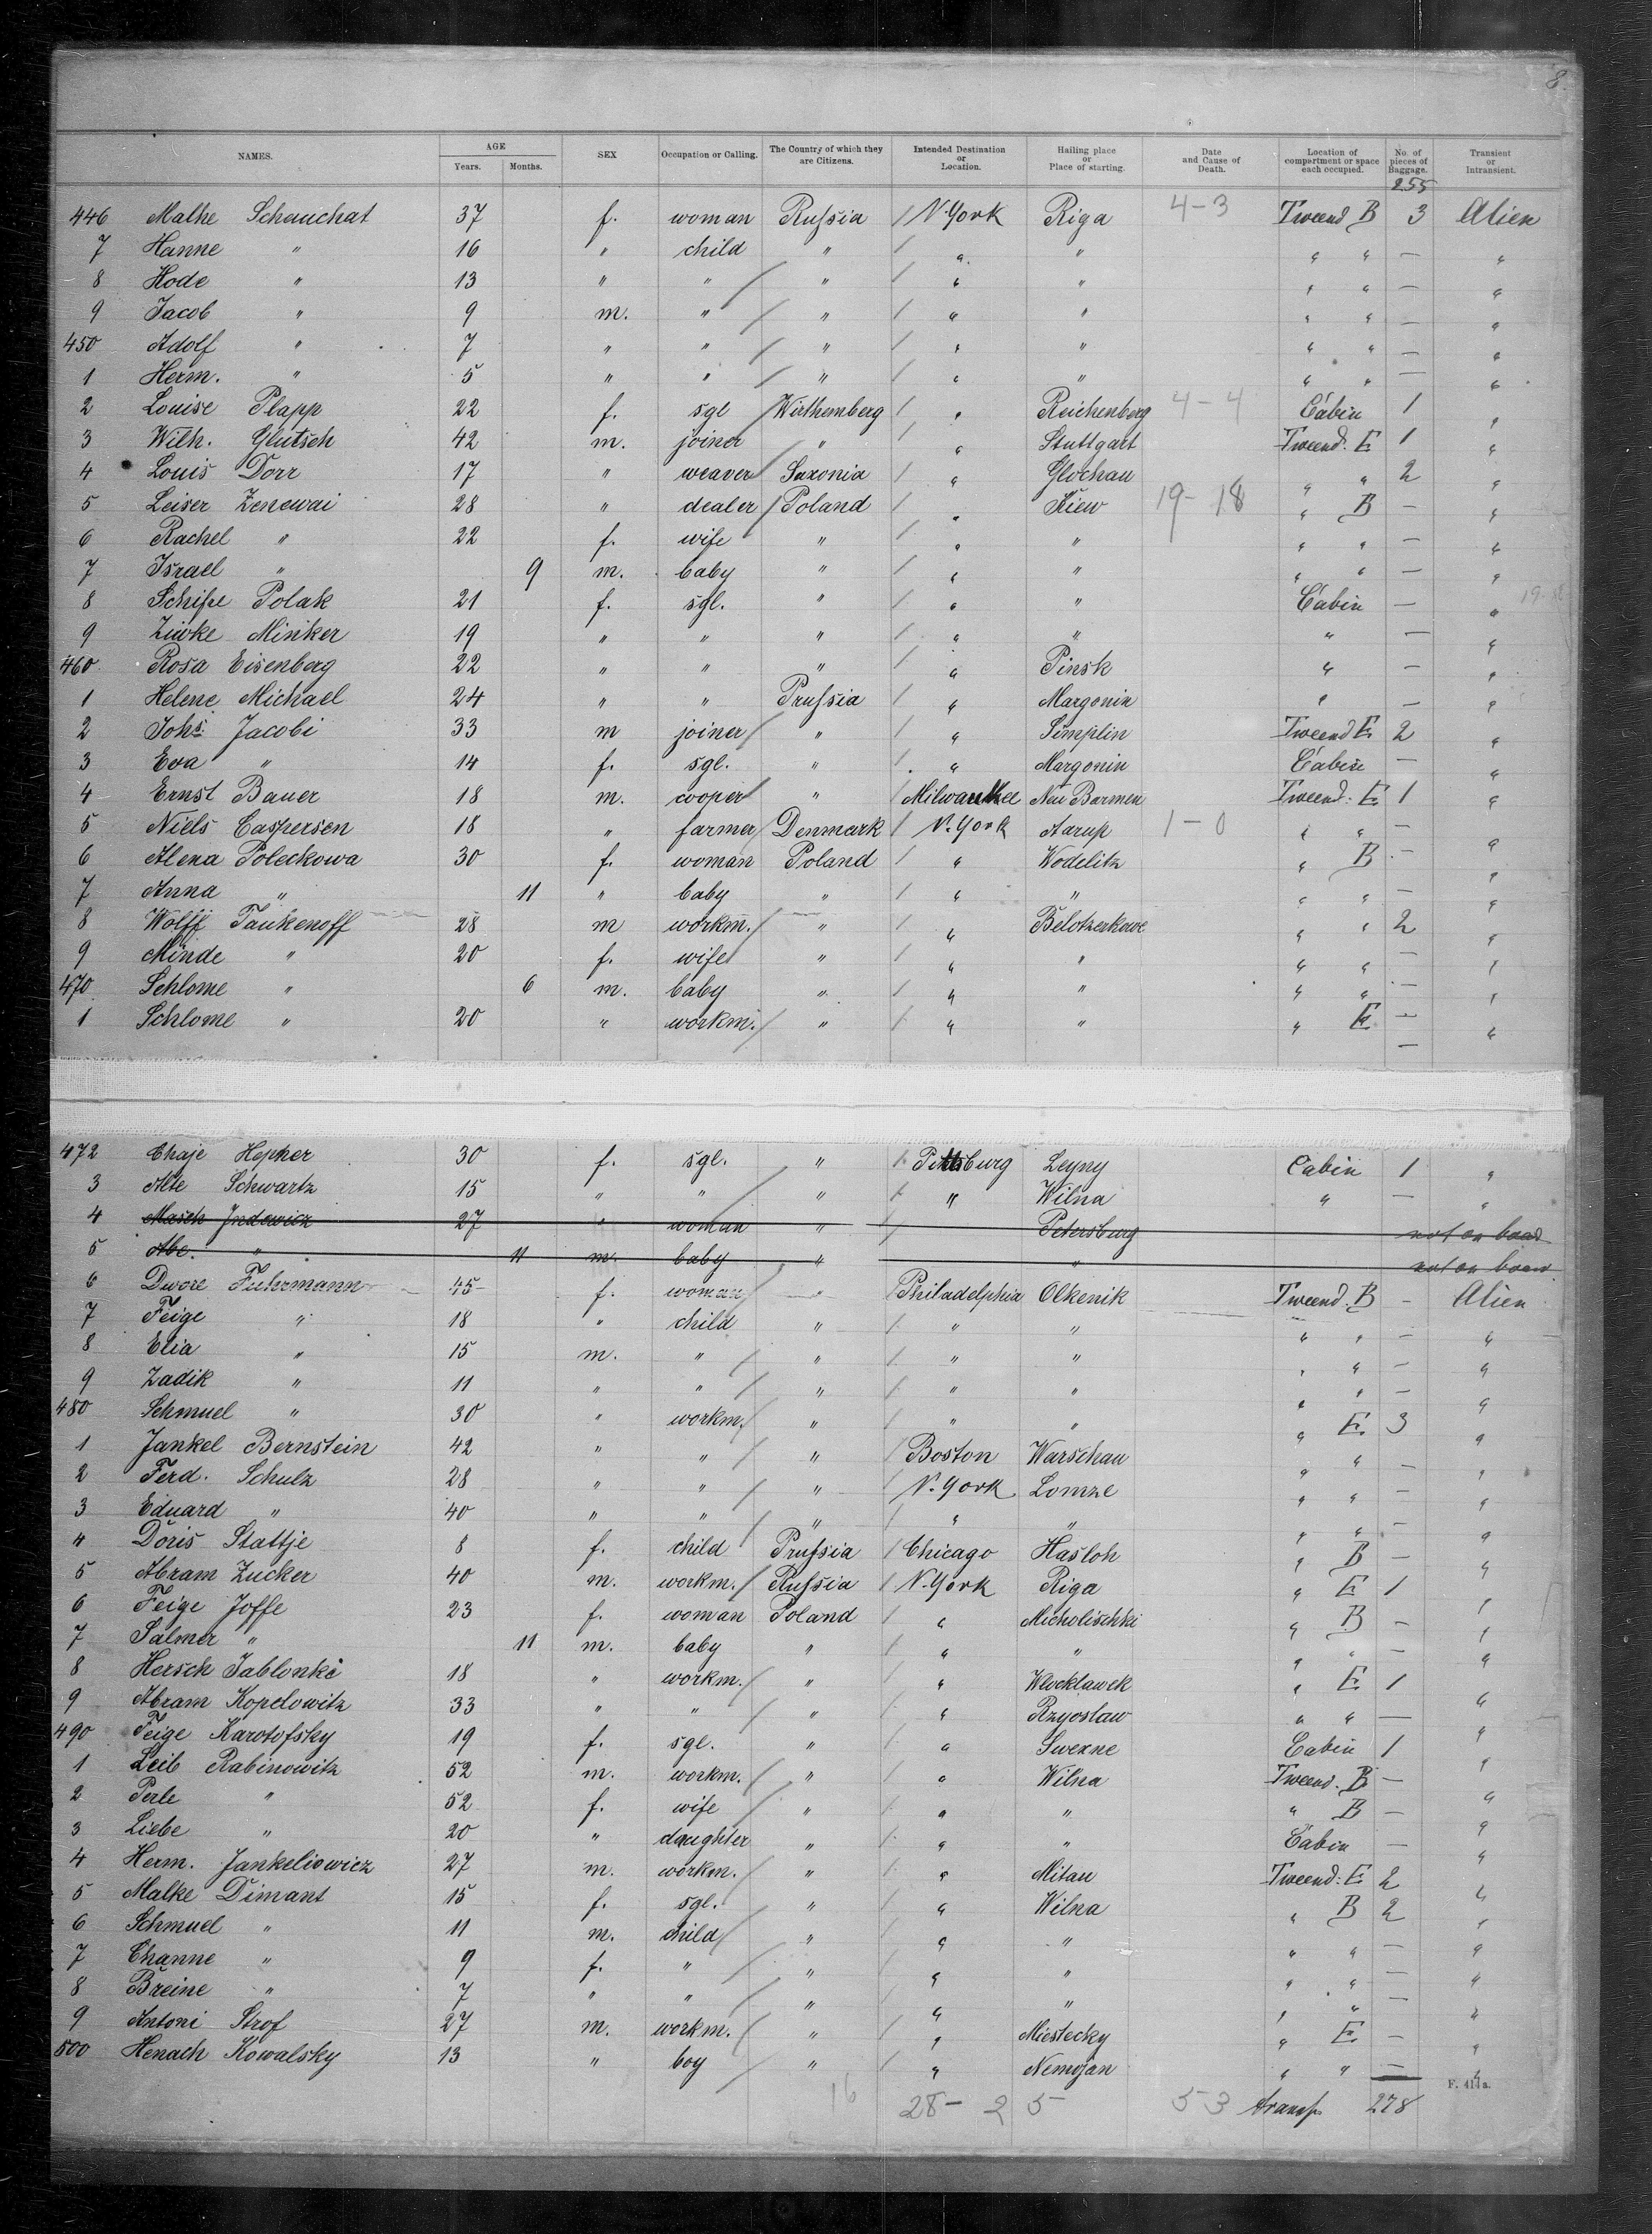 8.
NAMES. AGE Years. Months. SEX Occupation or Calling. The Country of which they are Citizens. Intended Destination or Location. Hailing place or Place of starting. Date and Cause of Death. Location of compartment or space each occupied. No. of pieces of Baggage. Transient or Intransient.
255
446 Malhe Schauchat 37 f. woman Rußia / N-York Riga 4-3 Tweend B 3 Alien
7 Hanne " 16 " child " / " " " " — "
8 Hode " 13 " " / " / " " " " — "
9 Jacob " 9 m. " / " / " " " " — "
450 Adolf " 7 " " / " / " " " " — "
1 Herm. " 5 " " / " / " " " " — "
2 Louise Plapp 22 f. sgl / Wirthemberg / " Reichenberg 4-4 Cabin 1 "
3 Wilh. Glutsch 42 m. joiner / " / " Stuttgart Tweend. E 1 "
4 Louis Dorr 17 " weaver / Saxonia / " Glochau " " 2 "
5 Leiser Zenewai 28 " dealer / Poland / " Kiew 19-18 " B - "
6 Rachel " 22 f. wife " / " " " " — "
7 Israel " 9 m. baby " / " " " " — "
8 Schipe Polak 21 f. sgl. " / " " Cabin — "
9 Ziwke Minker 19 " " " / " " " — "
460 Rosa Eisenberg 22 " " " / " Pinsk " — "
1 Helene Michael 24 " " Prußia / " Margonin " — "
2 Johs. Jacobi 33 m joiner / " / " Templin Tweend E 2 "
3 Eva " 14 f. sgl. " " Margonin Cabin — "
4 Ernst Bauer 18 m. cooper / " / Milwaukee Neu Barmen Tweend: E 1 "
5 Niels Caspersen 18 " farmer / Denmark / N-York Aarup 1-0 " " — "
6 Alena Poleckowa 30 f. woman Poland / " Wodelitz " B - "
7 Anna " 11 " baby " / " " " " — "
8 Wolff Taukenoff 28 m workm. / " / " Belotzerkowe " " 2 "
9 Minde " 20 f. wife " / " " " " — "
470 Schlome " 6 m. baby " / " " " " — "
1 Schlome " 20 " workm. / " / " " " E — "
472 Chaje Hepner 30 f. sgl. " / Pittsburg Leyny Cabin 1 "
3 Alte Schwartz 15 " " / " / " Wilna " — "
4 Masch Indewicz 27 " woman " / Petersburg not on board
5 Abe. " 11 m. baby " " not on board
6 Dwore Fuhrmann 45 f. woman / " / Philadelphia Olkenik Tweend. B - Alien
7 Feige " 18 " child " / " " " " — "
8 Elia " 15 m. " / " / " " " " — "
9 Zadik " 11 " " / " / " " " " — "
480 Schmuel " 30 " workm. / " / " " " E 3 "
1 Jankel Bernstein 42 " " / " / Boston Warschau " " — "
2 Ferd. Schulz 28 " " / " / N-York Lomze " " — "
3 Eduard " 40 " " / " / " " " " — "
4 Doris Stattje 8 f. child Prußia / Chicago Hasloh " B — "
5 Abram Zucker 40 m. workm. / Rußia / N-York Riga " E 1 "
6 Feige Joffe 23 f. woman Poland / " Micholischki " B — "
7 Salmer " 11 m. baby " / " " " " — "
8 Hersch Jablonki 18 " workm. / " / " Wlocklawek " E 1 "
9 Abram Kopelowitz 33 " " / " / " Rzyoslaw " " — "
490 Feige Karotofsky 19 f. sgl. " / " Swexne Cabin 1 "
1 Leib Rabinowitz 52 m. workm. / " / " Wilna Tweend. B — "
2 Perle " 52 f. wife / " / " " " B — "
3 Liebe " 20 " daughter " / " " Cabin — "
4 Herm. Jankeliowicz 27 m. workm. / " / " Mitau Tweend: E 2 "
5 Malke Dimant 15 f. sgl. " / " Wilna " B 2 "
6 Schmuel " 11 m. child / " / " " " " — "
7 Channe " 9 f. " / " / " " " " — "
8 Breine " 7 " " / " / " " " " — "
9 Antoni Strof 27 m. workm. / " / " Miestecky " E — "
500 Henach Kowalsky 13 " boy / " / " Nemojan " " — "
F. 414a.
16 28- 2 5 53 transp. 278